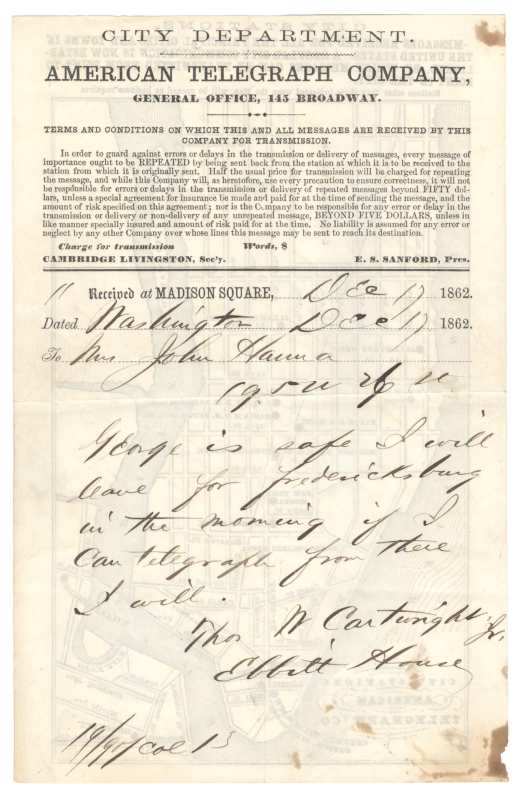 CITY DEPARTMENT.
AMERICAN TELEGRAPH COMPANY,
GENERAL OFFICE, 145 BROADWAY.
TERMS AND CONDITIONS ON WHICH THIS AND ALL MESSAGES ARE RECEIVED BY THIS
COMPANY FOR TRANSMISSION.
In order to guard against errors or delays in the transmission or delivery of messages, every message of
importance ought to be REPEATED by being sent back from the station at which it is to be received to the
station from which it is originally sent. Half the usual price for transmission will be charged for repeating
the message, and while this Company will, as heretofore, use every precaution to ensure correctness, it will not
be responsible for errors or delays in the transmission or delivery of repeated messages beyond FIFTY dol-
lars, unless a special agreement for insurance be made and paid for at the time of sending the message, and the
amount of risk specified on this agreement; nor is the Company to be responsible for any error or delay in the
transmission or delivery or non-delivery of any unrepeated message, BEYOND FIVE DOLLARS, unless in
like manner specially insured and amount of risk paid for at the time. No liability is assumed for any error or
neglect by any other Company over whose lines this message may be sent to reach its destination.
Charge for transmission Words, $
CAMBRIDGE LIVINGSTON, Sec'y. E. S. SANFORD, Pres.
11 Received at MADISON SQUARE, Dec 17 1862.
Dated Washington Dec 17 1862.
To Mrs John Hanna
195 W 26 st
George is safe I will
leave for fredericksburg
in the morning if I
can telegraph from there
I will.
Thos W Cartwright Jr.
Ebbitt House